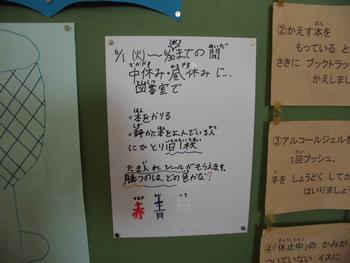 6/1(火)〜
までの間
中休み・昼休みに、
図書室で
○本をかりる
○静かに本をよんでいる人
にひとり1日1枚
たま入れシールがもらえます。
勝つのは、どの色かな?
赤 青 白
②かえす本を
もっている と
さきに ブックトラッ
かえしまし
③アルコールジェルを
1回プッシュ、
手を しょうどく してか
はいりましょ
④「休止中」の かみが
ついていない イスに